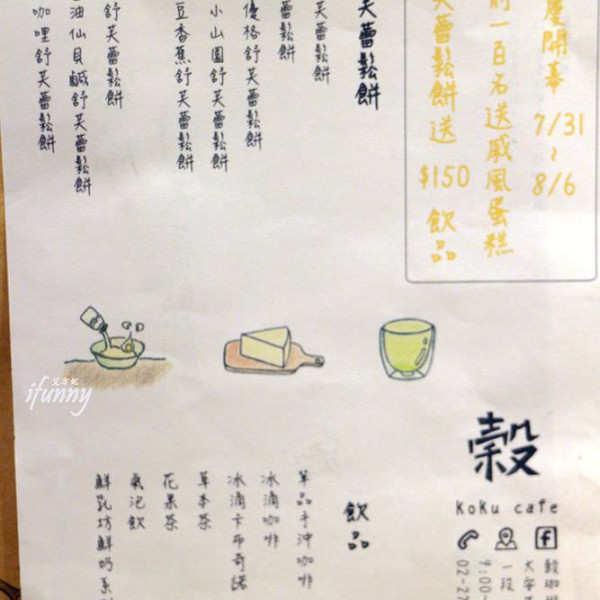 慶開幕 7/31~8/6
前一百名送戚風蛋糕
芙蕾鬆餅送$150飲品
芙蕾鬆餅
芙蕾鬆餅
蕾鬆餅
優格舒芙蕾鬆餅
小山園舒芙蕾鬆餅
豆香蕉舒芙蕾鬆餅
舒芙蕾鬆餅
油仙貝鹹舒芙蕾鬆餅
咖哩舒芙蕾鬆餅
艾方妮
ifunny
穀
KoKu cafe
一段
9:00-
02-27
飲品
單品手沖咖啡
冰滴咖啡
冰滴卡布奇諾
草本茶
花果茶
氣泡飲
鮮乳坊鮮奶系列